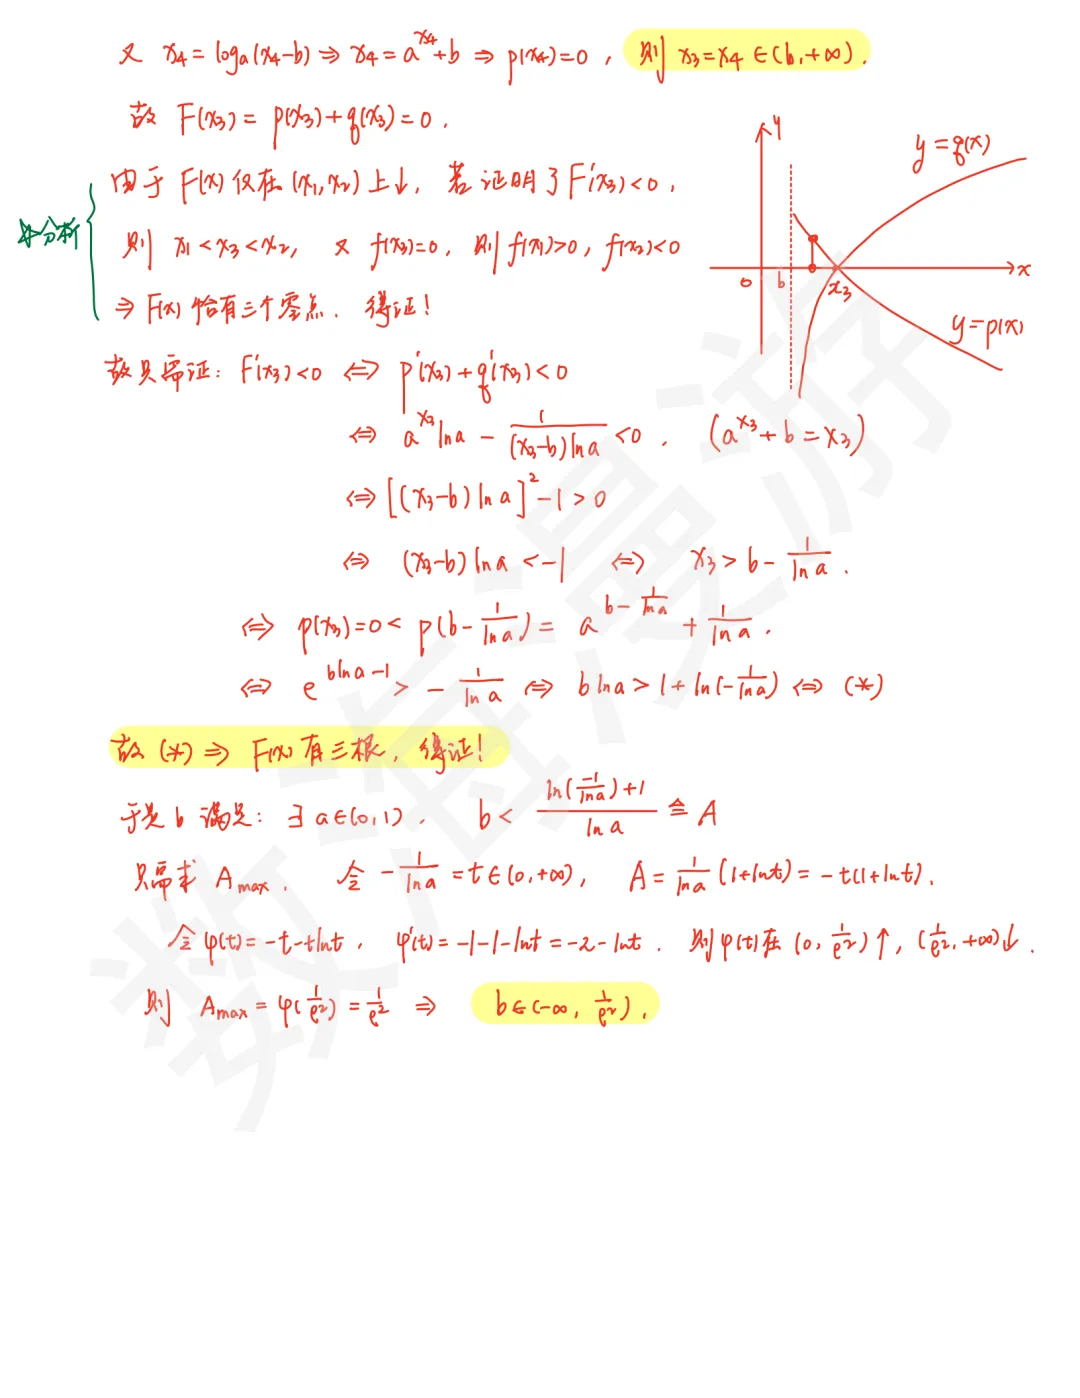 又 x₄=logₐ(x₄-b) ⇒ x₄=a^{x₄}+b ⇒ p(x₄)=0, 则 x₃=x₄∈(b,+∞).
故 F(x₃)=p(x₃)+q(x₃)=0.
由于 F(x) 仅在 (x₁,x₂) 上↓, 若证明了 F'(x₃)<0,
分析
则 x₁<x₃<x₂, 又 f(x₃)=0, 则 f(x₁)>0, f(x₂)<0
⇒ F(x) 恰有三个零点. 得证!
y
y=q(x)
0
b
x₃
x
y=p(x)
故只需证: F'(x₃)<0 ⇔ p'(x₃)+q'(x₃)<0
⇔ a^{x₃}lna - 1/((x₃-b)lna) <0. (a^{x₃}+b=x₃)
⇔ [(x₃-b)lna]²-1>0
⇔ (x₃-b)lna<-1 ⇔ x₃>b-1/lna.
⇔ p(x₃)=0<p(b-1/lna)=a^{b-1/lna}+1/lna.
⇔ e^{blna-1}>-1/lna ⇔ blna>1+ln(-1/lna) ⇔ (*)
故 (*) ⇒ F(x) 有三根, 得证!
于是 b 满足: ∃a∈(0,1), b<(ln(-1/lna)+1)/lna ≜ A
只需求 A_max. 令 -1/lna=t∈(0,+∞), A=1/lna(1+lnt)=-t(1+lnt).
令 φ(t)=-t-tlnt, φ'(t)=-1-1-lnt=-2-lnt. 则 φ(t) 在 (0,1/e²)↑, (1/e²,+∞)↓.
则 A_max=φ(1/e²)=1/e² ⇒ b∈(-∞,1/e²).
数海漫游